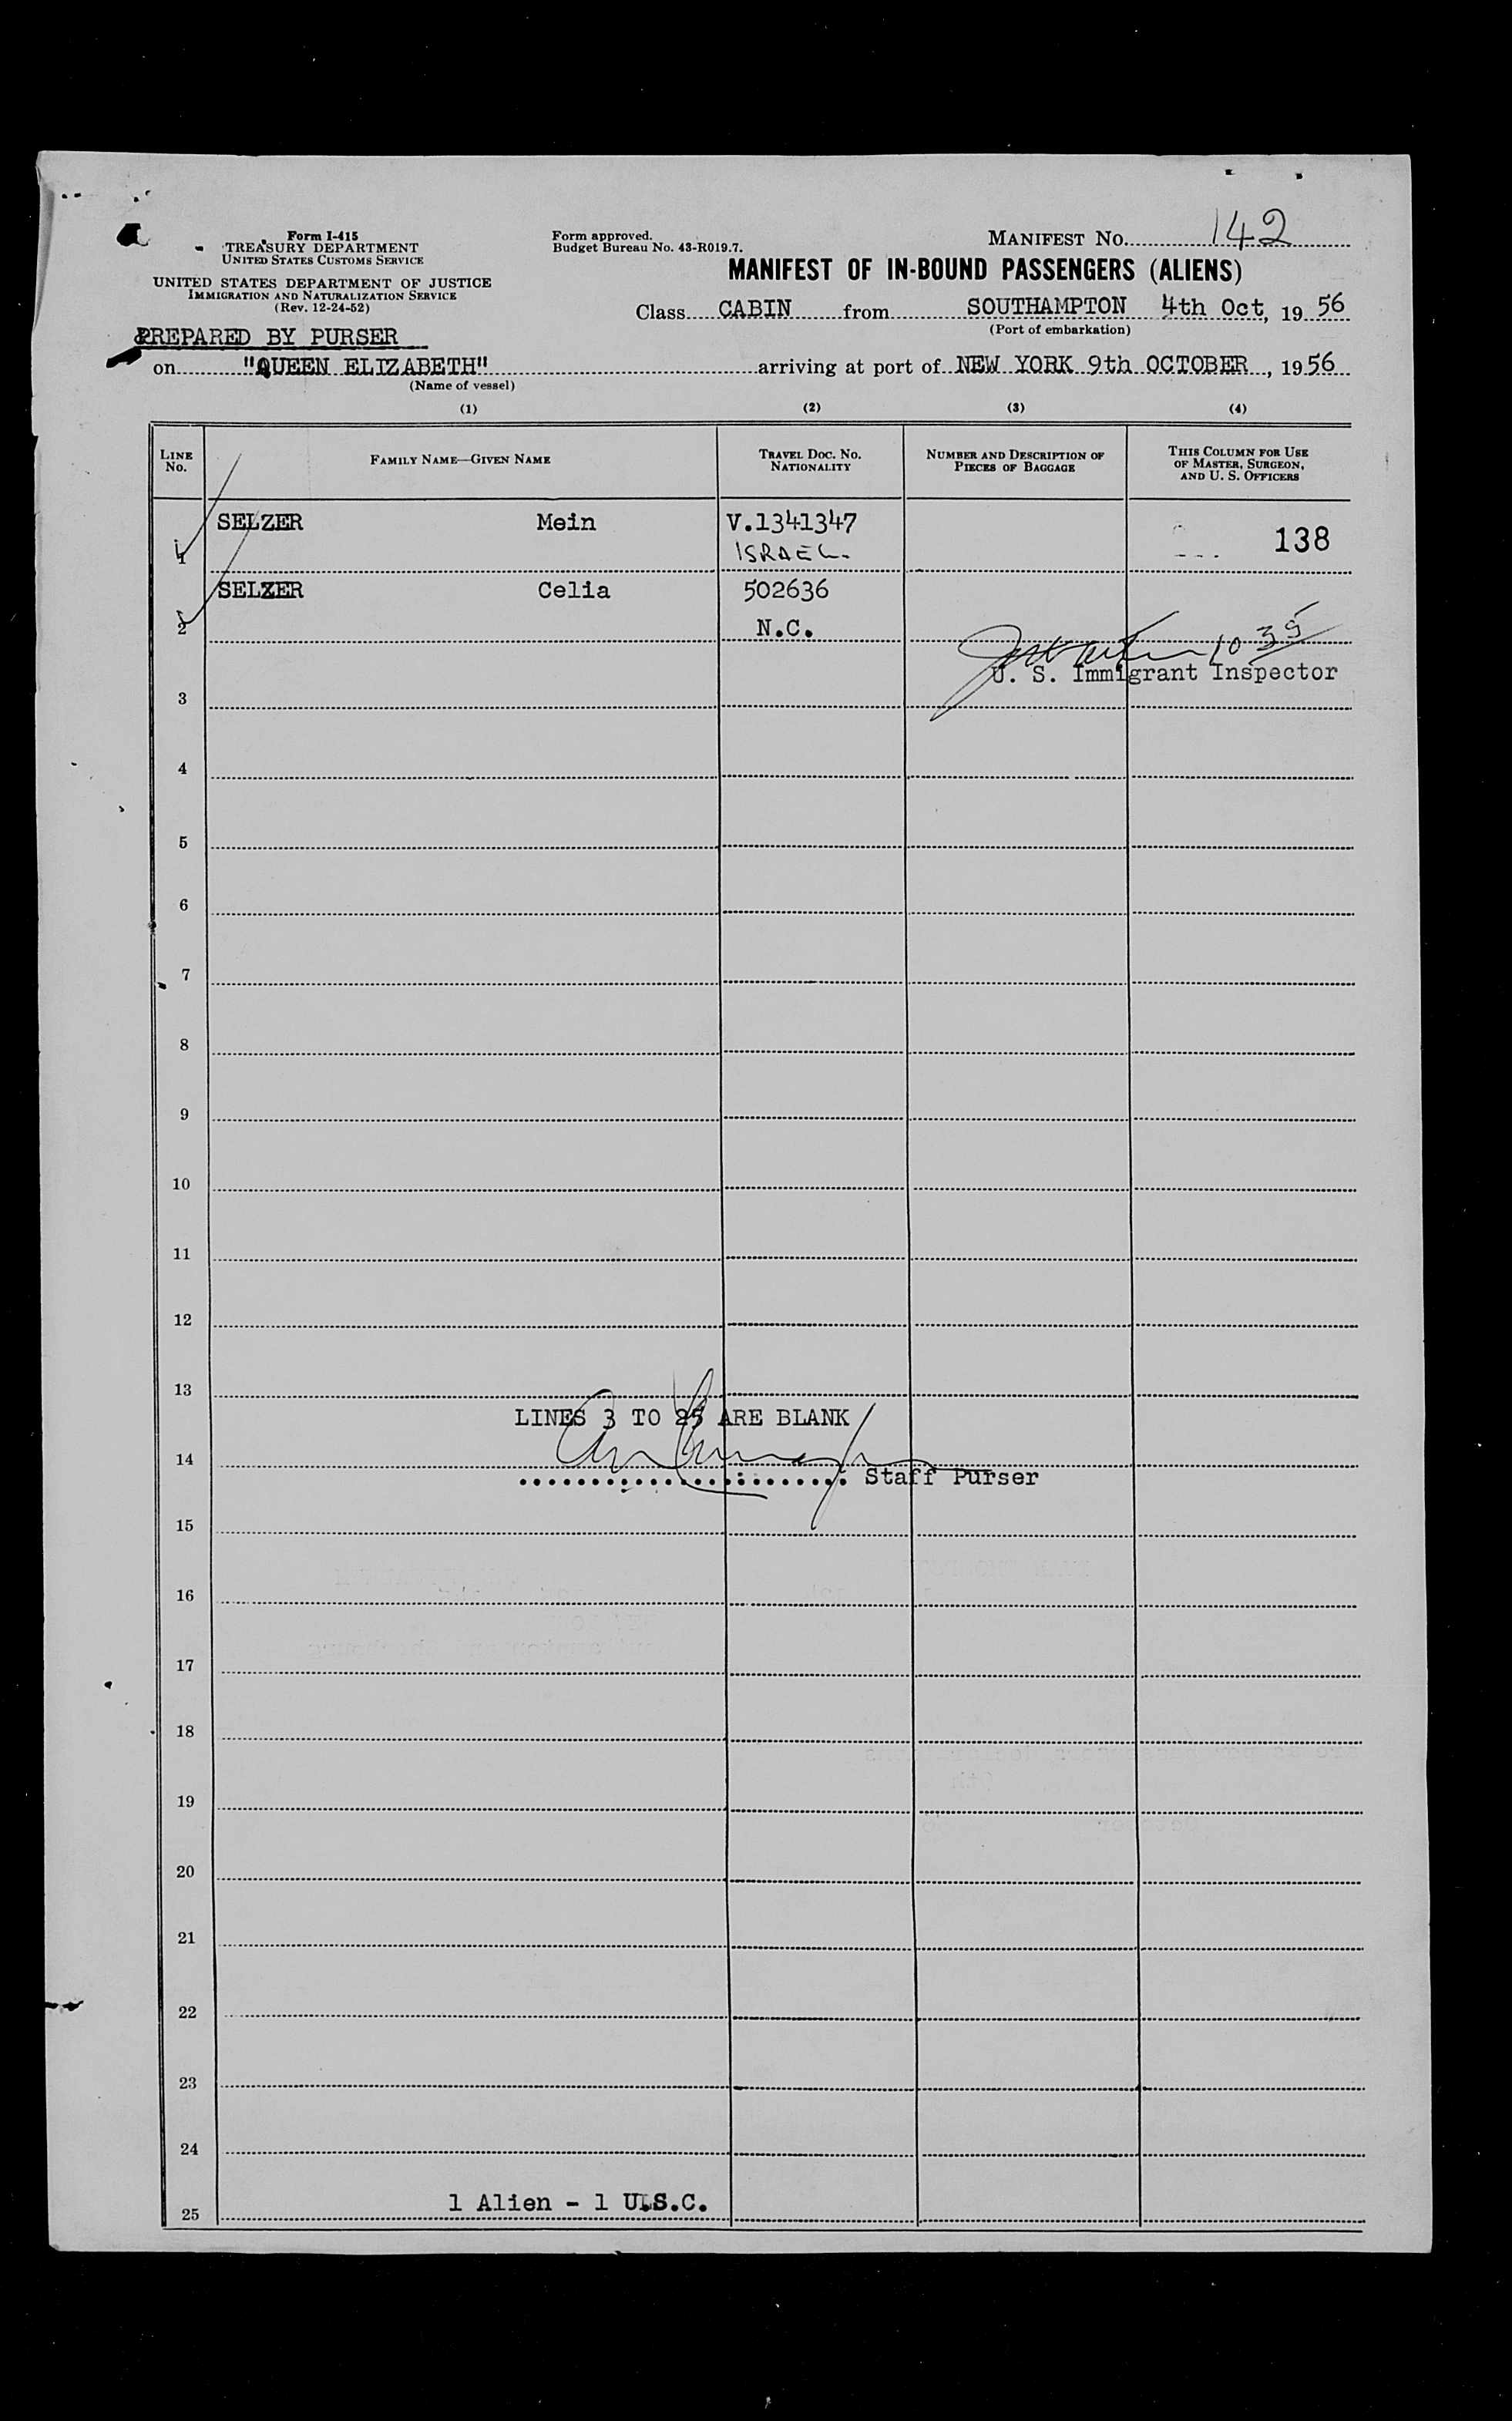 MANIFEST NO. 142
Form I-415
TREASURY DEPARTMENT
UNITED STATES CUSTOMS SERVICE
UNITED STATES DEPARTMENT OF JUSTICE
IMMIGRATION AND NATURALIZATION SERVICE
(Rev. 12-24-52)
Form approved.
Budget Bureau No. 43-R019.7.
MANIFEST OF IN-BOUND PASSENGERS (ALIENS)
Class CABIN from SOUTHAMPTON 4th Oct, 19 56
(Port of embarkation)
PREPARED BY PURSER
on "QUEEN ELIZABETH" arriving at port of NEW YORK 9th OCTOBER, 19 56
(Name of vessel)
(1) (2) (3) (4)
LINE NO. FAMILY NAME—GIVEN NAME TRAVEL DOC. NO. NATIONALITY NUMBER AND DESCRIPTION OF PIECES OF BAGGAGE THIS COLUMN FOR USE OF MASTER, SURGEON, AND U. S. OFFICERS
SELZER Mein V.1341347 138
1 ISRAEL
SELZER Celia 502636
2 N.C.
10 35
U. S. Immigrant Inspector
3
4
5
6
7
8
9
10
11
12
13
LINES 3 TO 25 ARE BLANK
14
Staff Purser
15
16
17
18
19
20
21
22
23
24
25 1 Alien - 1 U.S.C.